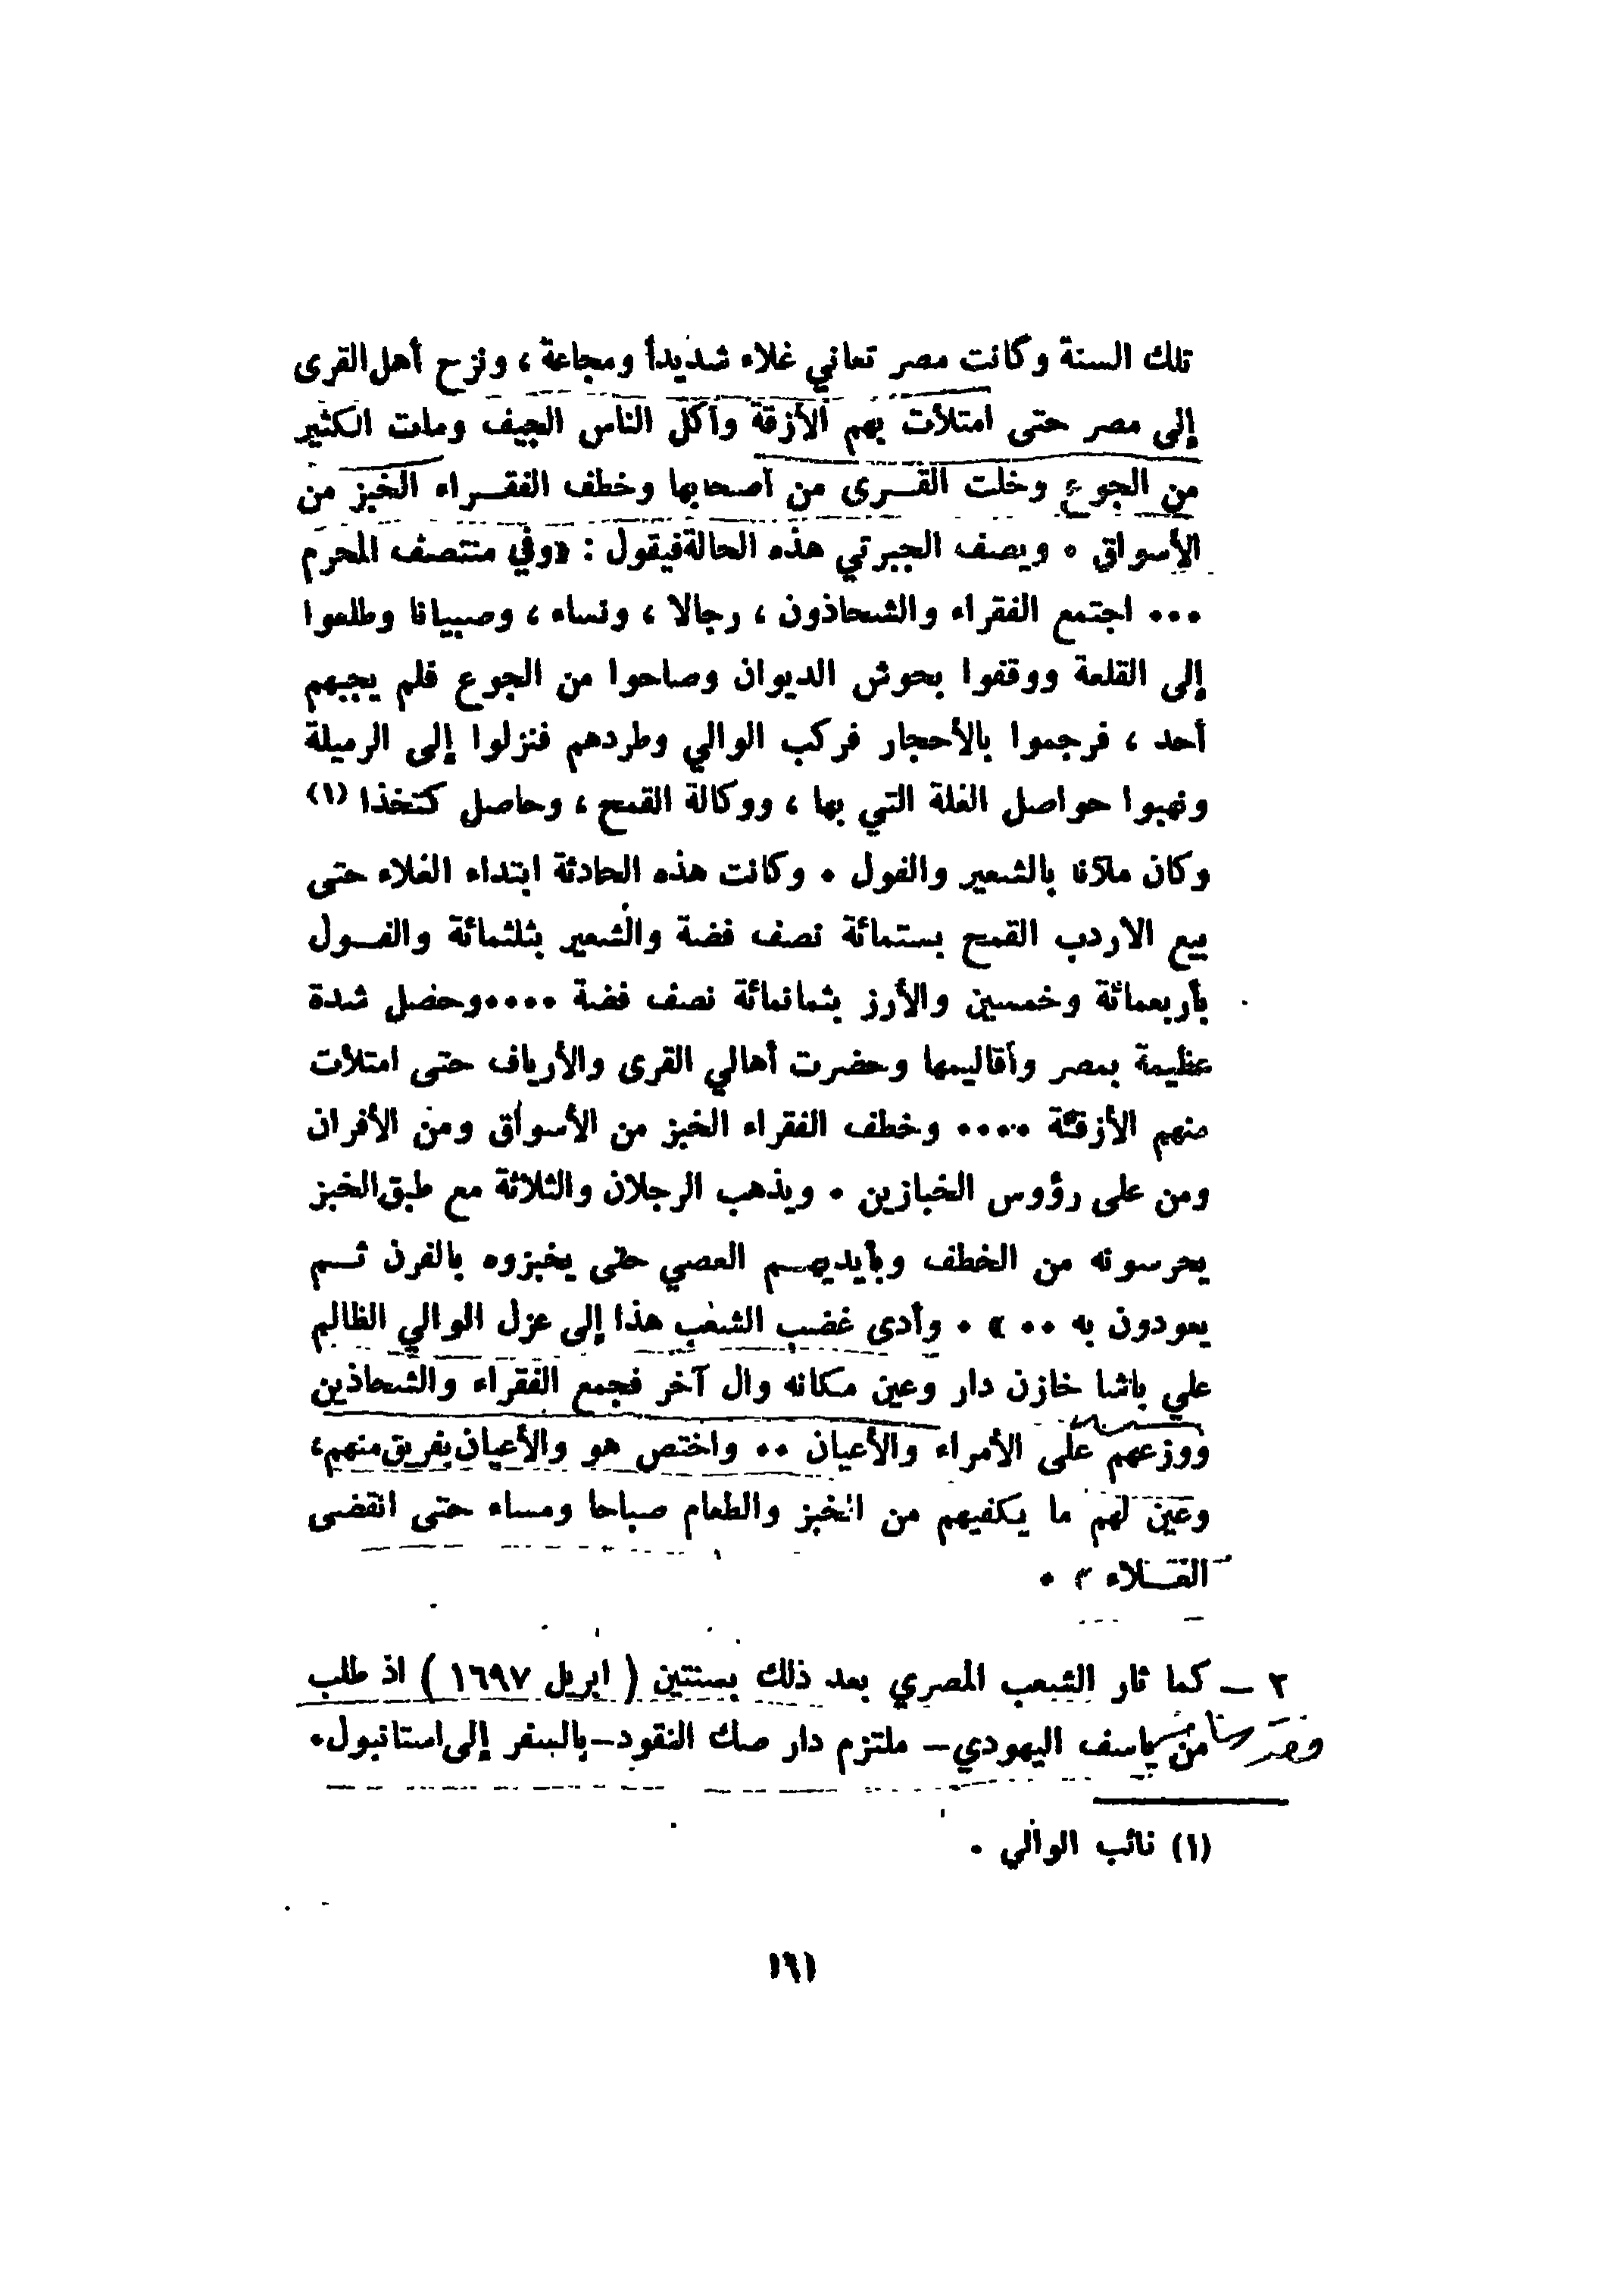 تلك السنة وكانت مصر تعاني غلاء شديداً ومجاعة ، ونزح أهل القرى
إلى مصر حتى امتلأت بهم الأزقة وأكل الناس الجيف ومات الكثير
من الجوع وخلت القــرى من أصحابها وخطف الفقــراء الخبز من
الأسواق . ويصف الجبرتي هذه الحالة فيقول : «وفي منتصف المحرم
... اجتمع الفقراء والشحاذون ، رجالا ، ونساء ، وصبيانا وطلعوا
إلى القلعة ووقفوا بحوش الديوان وصاحوا من الجوع فلم يجبهم
أحد ، فرجموا بالأحجار فركب الوالي وطردهم فنزلوا إلى الرميلة
ونهبوا حواصل الغلة التي بها ، ووكالة القمح ، وحاصل كتخذا (١)
وكان ملآنا بالشعير والفول . وكانت هذه الحادثة ابتداء الغلاء حتى
بيع الاردب القمح بستمائة نصف فضة والشعير بثلثمائة والفــول
بأربعمائة وخمسين والأرز بثمانمائة نصف فضة ....وحصل شدة
عظيمة بمصر وأقاليمها وحضرت أهالي القرى والأرياف حتى امتلأت
منهم الأزقة .... وخطف الفقراء الخبز من الأسواق ومن الأفران
ومن على رؤوس الخبازين . ويذهب الرجلان والثلاثة مع طبق الخبز
يحرسونه من الخطف وبأيديهــم العصي حتى يخبزوه بالفرن ثــم
يعودون به .. » . وأدى غضب الشعب هذا إلى عزل الوالي الظالم
علي باشا خازن دار وعين مكانه وال آخر فجمع الفقراء والشحاذين
ووزعهم على الأمراء والأعيان .. واختص هو والأعيان بفريق منهم ،
وعين لهم ما يكفيهم من الخبز والطعام صباحا ومساء حتى انقضى
الغــلاء » .
٢ ــ كما ثار الشعب المصري بعد ذلك بسنتين ( ابريل ١٦٩٧ ) اذ طلب
من ياسف اليهودي ــ ملتزم دار صك النقود ــ بالسفر إلى استانبول .
(١) نائب الوالي .
١٦١